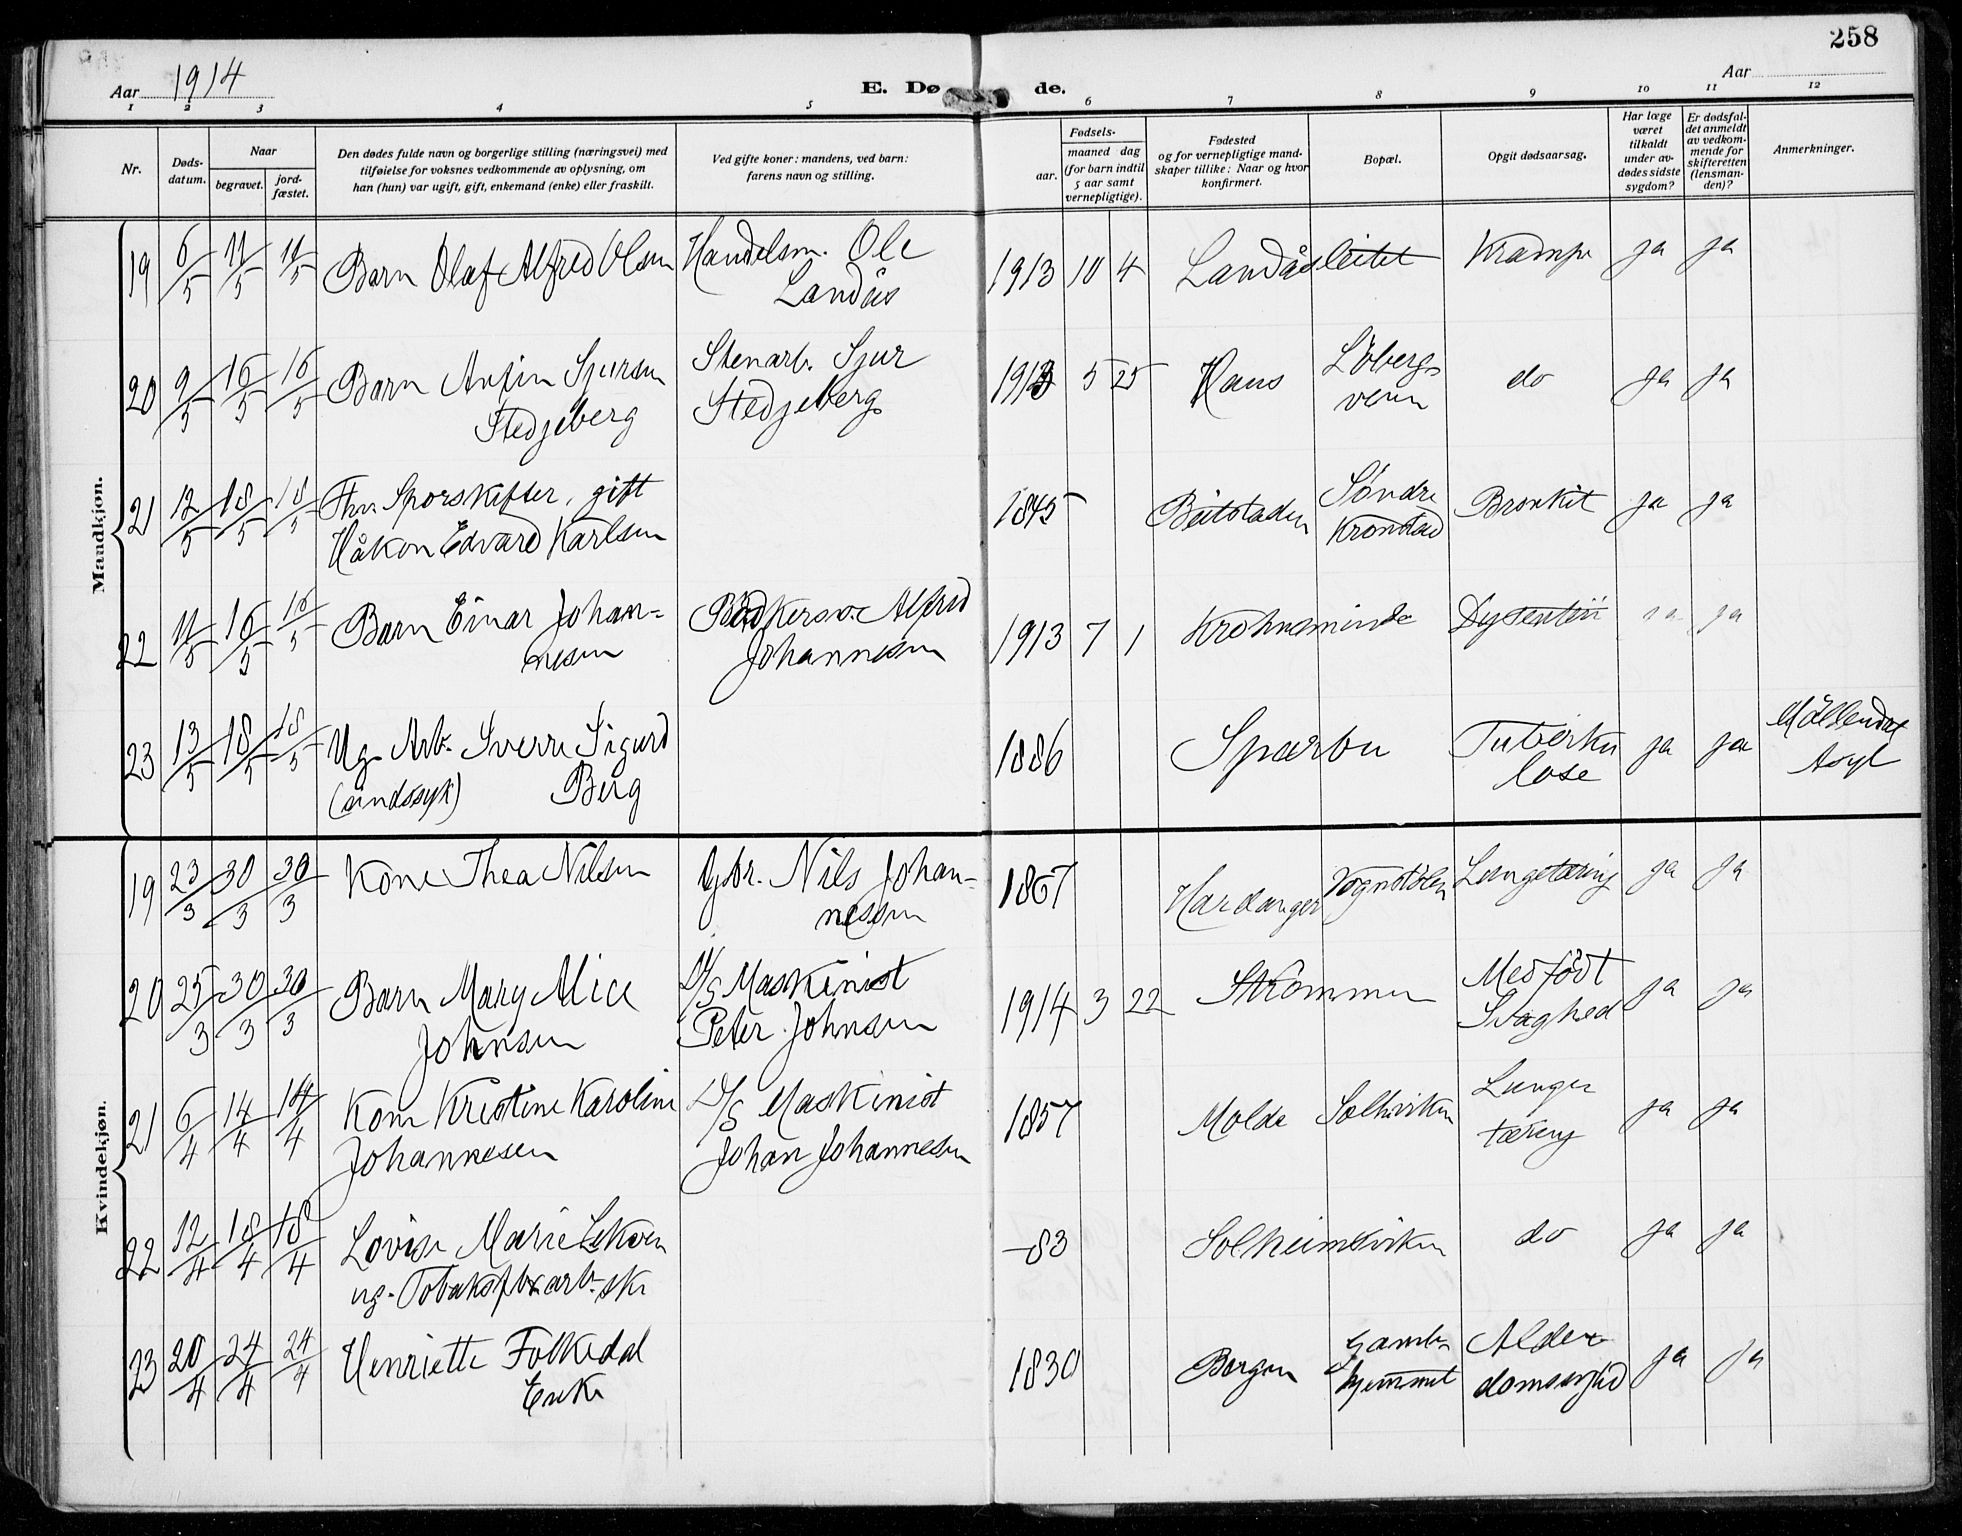 258
Aar 1914
E. Dø de.
Aar
1 2 3 4 5 6 7 8 9 10 11 12
Nr.
Døds-
datum.
Naar
begravet.
jord-
fæstet.
Den dødes fulde navn og borgerlige stilling (næringsvei) med
tilføielse for voksnes vedkommende av oplysning, om
han (hun) var ugift, gift, enkemand (enke) eller fraskilt.
Ved gifte koner: mandens, ved barn:
farens navn og stilling.
Fødsels-
aar.
maaned dag
(for barn indtil
5 aar samt
vernepligtige).
Fødested
og for vernepligtige mand-
skaper tillike: Naar og hvor
konfirmert.
Bopæl.
Opgit dødsaarsag.
Har læge
været
tilkaldt
under av-
dødes sidste
sygdom?
Er dødsfal-
det anmeldt
av vedkom-
mende for
skifteretten
(lensman-
den)?
Anmerkninger.
Mandkjøn.
19 6/5 11/5 11/5 Barn Olaf Alfred Olsen Handelsm. Ole
Landås
1913 10 4 Landåsleitet Krampe ja ja
20 9/5 16/5 16/5 Barn Anfin Sjursen
Stedjeberg
Stenarb. Sjur
Stedjeberg
1913 5 25 Haus Löbergs
veien
do ja ja
21 12/5 18/5 18/5 Fhv. Sporskifter, gift
Håkon Edvard Karlsen
1845 Beitstaden Söndre
Kronstad
Bronkit ja ja
22 11/5 16/5 16/5 Barn Einar Johan=
nesen
Bödkersv. Alfred
Johannesen
1913 7 1 Krohnsminde Dysenteri ja ja
23 13/5 18/5 18/5 Ug. Arb. Sverre Sigurd
(sindssyk) Berg
1886 Sparbu Tuberku
lose
ja ja Möllendal
Asyl
Kvindekjøn.
19 23/3 30/3 30/3 Kone Thea Nilsen Gbr. Nils Johan-
nessen
1867 Hardanger Vognstölen Lungetæring ja ja
20 25/3 30/3 30/3 Barn Mary Alice
Johnsen
D/S Maskinist
Peter Johnsen
1914 3 22 Strömmen Medfödt
Svaghed
ja ja
21 6/4 14/4 14/4 Kone Kristine Karoline
Johannesen
D/S Maskinist
Johan Johannesen
1857 Molde Solhviken Lunge
tæring
ja ja
22 12/4 18/4 18/4 Lovise Marie Lekven
ug. Tobaksfbr.arb.ske
-83 Solheimsviken do ja ja
23 20/4 24/4 24/4 Henriette Folkedal
Enke
1830 Bergen Gamle
hjemmet
Alder
domssvækelse ja ja